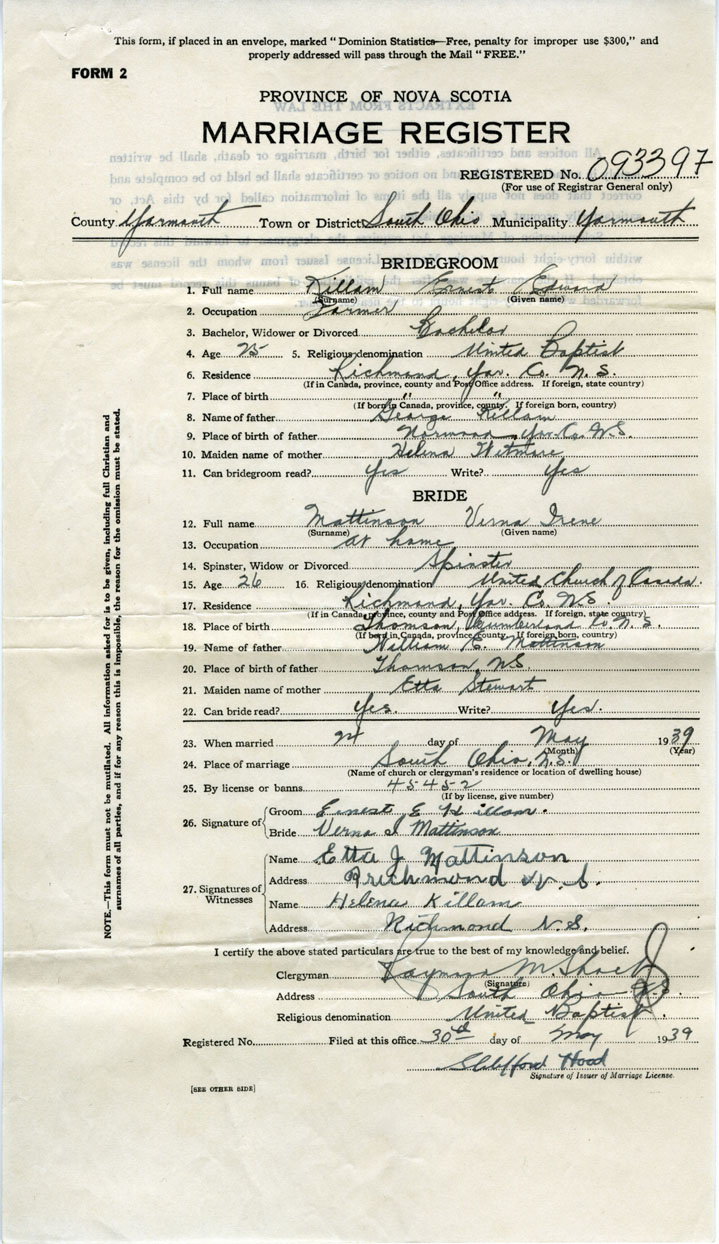 This form, if placed in an envelope, marked "Dominion Statistics—Free, penalty for improper use $300," and
properly addressed will pass through the Mail "FREE."
FORM 2
PROVINCE OF NOVA SCOTIA
MARRIAGE REGISTER
REGISTERED No. 093397
(For use of Registrar General only)
County Yarmouth Town or District South Ohio Municipality Yarmouth
BRIDEGROOM
1. Full name Killam Ernest Edward
(Surname) (Given name)
2. Occupation Farmer
3. Bachelor, Widower or Divorced Bachelor
4. Age 25 5. Religious denomination United Baptist
6. Residence Richmond, Yar. Co. N.S.
(If in Canada, province, county and Post Office address. If foreign, state country)
7. Place of birth " "
(If born in Canada, province, county. If foreign born, country)
8. Name of father George Killam
9. Place of birth of father Norwood, Yar. Co. N.S.
10. Maiden name of mother Helena Witmore
11. Can bridegroom read? Yes Write? Yes
BRIDE
12. Full name Mattinson Verna Irene
(Surname) (Given name)
13. Occupation At home
14. Spinster, Widow or Divorced Spinster
15. Age 26 16. Religious denomination United Church of Canada.
17. Residence Richmond, Yar. Co. N.S.
(If in Canada, province, county and Post Office address. If foreign, state country)
18. Place of birth Thomson, Cumberland Co. N.S.
(If born in Canada, province, county. If foreign born, country)
19. Name of father William E. Mattinson
20. Place of birth of father Thomson, NS
21. Maiden name of mother Etta Stewart
22. Can bride read? Yes. Write? Yes.
23. When married day of May 1939
(Month) (Year)
24. Place of marriage South Ohio, N.S.
(Name of church or clergyman's residence or location of dwelling house)
25. By license or banns 45452
(If by license, give number)
26. Signature of Groom Ernest E Killam.
Bride Verna I Mattinson
27. Signatures of Witnesses Name Etta J Mattinson
Address Richmond N. S.
Name Helena Killam
Address Richmond N.S.
I certify the above stated particulars are true to the best of my knowledge and belief.
Clergyman Raymond M.
(Signature)
Address South Ohio N.S.
Religious denomination United Baptist.
Registered No. Filed at this office 30th day of May 1939
Clifford Hood
Signature of Issuer of Marriage License.
[SEE OTHER SIDE]
NOTE.—This form must not be mutilated. All information asked for is to be given, including full Christian and
surnames of all parties, and if for any reason this is impossible, the reason for the omission must be stated.